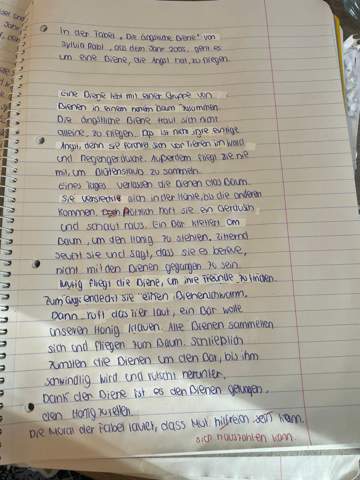 In der Fabel „Die ängstliche Biene" von
Sylvia Rabl, aus dem Jahr 2005, geht es
um eine Biene, die Angst hat, zu fliegen.
Eine Biene lebt mit einer Gruppe von
Bienen in einem hohlen Baum zusammen.
Die ängstliche Biene traut sich nicht
alleine, zu fliegen. Das ist nicht ihre einzige
Angst, denn sie fürchtet sich vor Tieren im Wald
und Regengeräusche. Außerdem fliegt sie nie
mit, um Blütenstaub zu sammeln.
Eines Tages verlassen die Bienen das Baum.
Sie versteckt sich in der Höhle, bis die anderen
kommen. Plötzlich hört sie ein Geräusch
und schaut raus. Ein Bär klettert am
Baum, um den Honig zu stehlen. Zitternd
seufzt sie und sagt, dass sie es bereue,
nicht mit den Bienen gegangen zu sein.
Mutig fliegt die Biene, um ihre Freunde zu finden.
Dann ruft das Tier laut, ein Bär wolle
unseren Honig klauen. Alle Bienen sammelten
sich und fliegen zum Baum. Schließlich
die Bienen um den Bär, bis ihm
schwindlig wird und rutscht herunter.
Dank der Biene ist es den Bienen gelungen,
den Honig zu retten.
Die Moral der Fabel lautet, dass Mut hilfreich sein kann.
sich auszahlen kann.